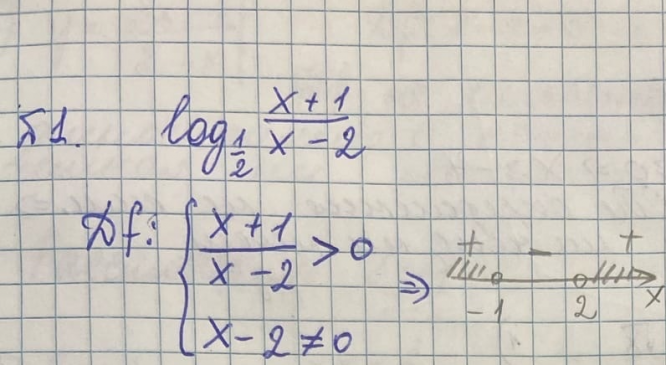 Б1. log_{1/2} (x + 1)/(x - 2)
Df: { (x + 1)/(x - 2) > 0
x - 2 ≠ 0
⇒ + - +
-1 2 x